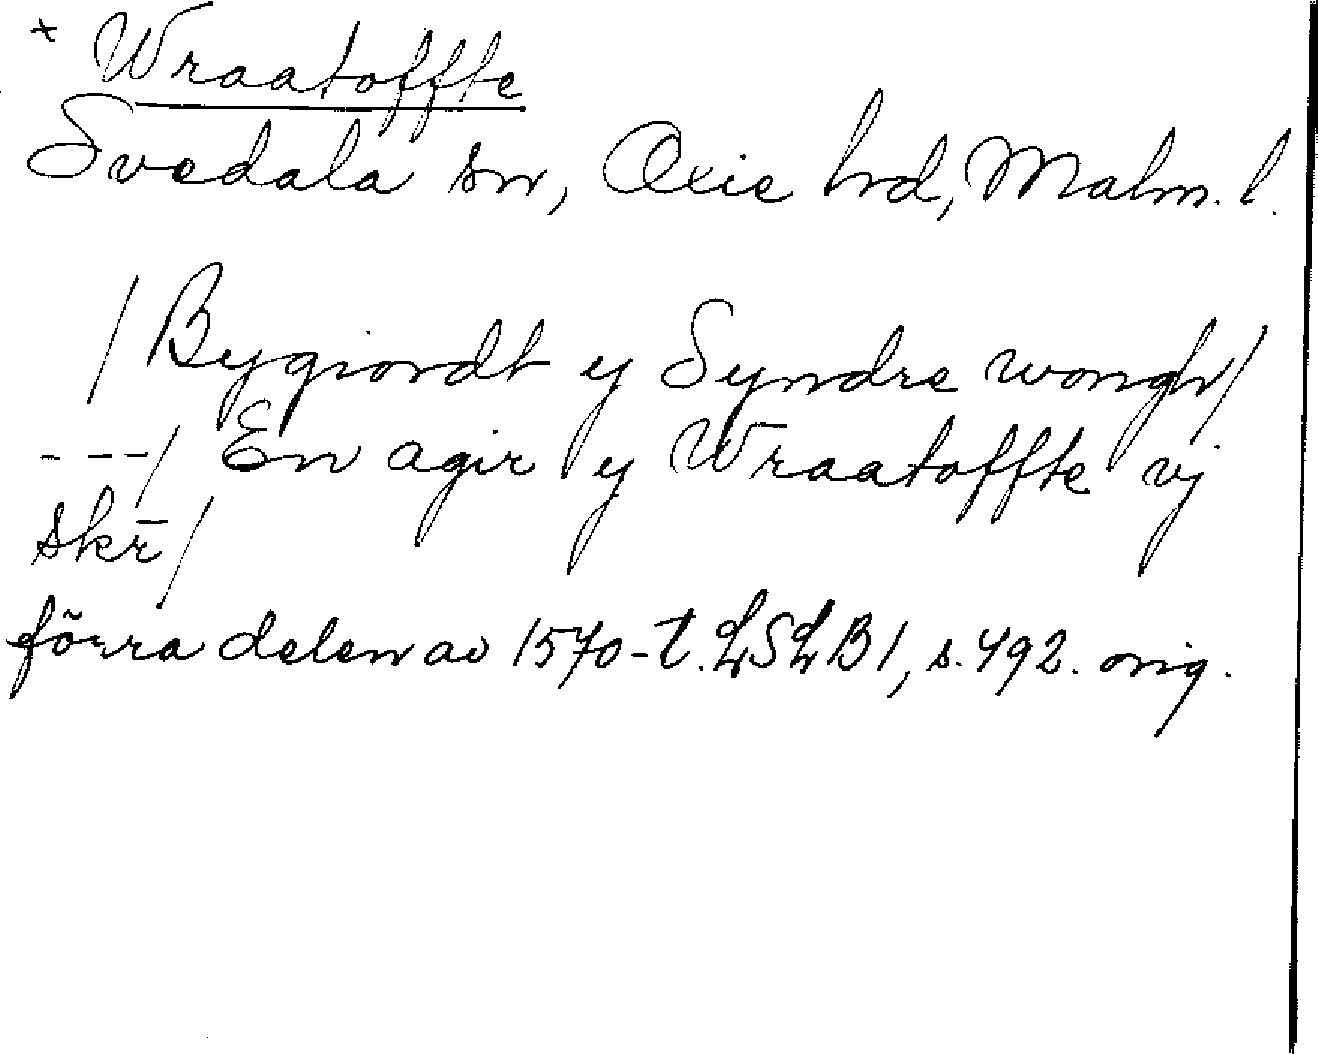 + Wraatoffte
Svedala sn, Oxie hrd, Malm. l.
/ Bygiordt y Syndre wongh/
---/ En agir y Wraatoffte vj
skr̄/
förra delen av 1570-t. LSLB1, s. 492. orig.